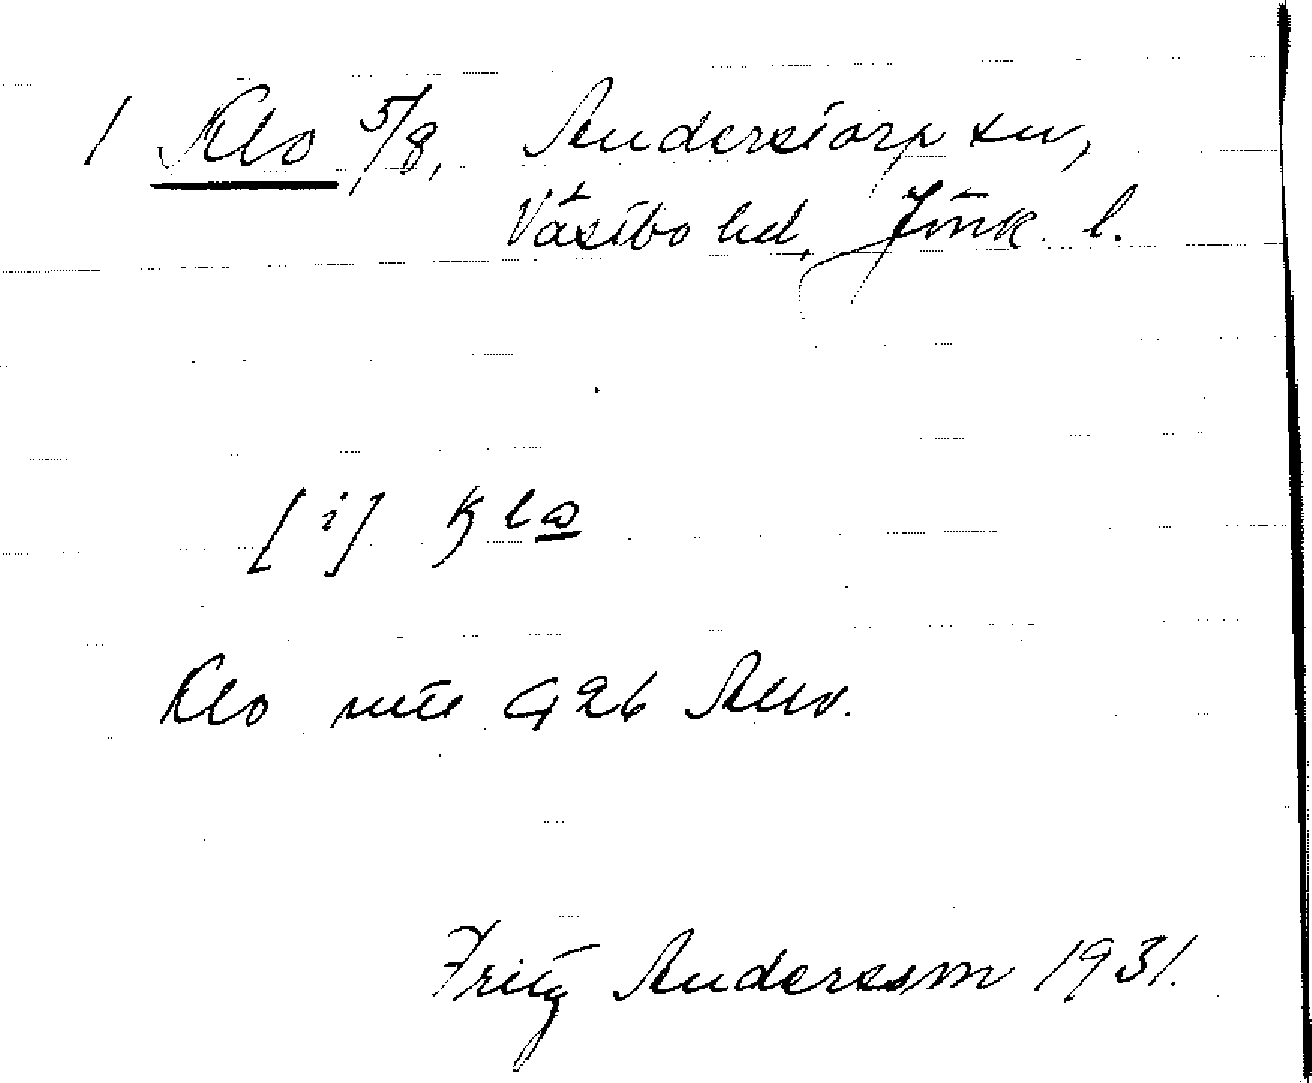 1 Klo 5/8, Anderstorp sn,
Västbo hd, Jönk. l.
[i] kl
Klo mtl G 26 Allm.
Fritz Andersson 1931.